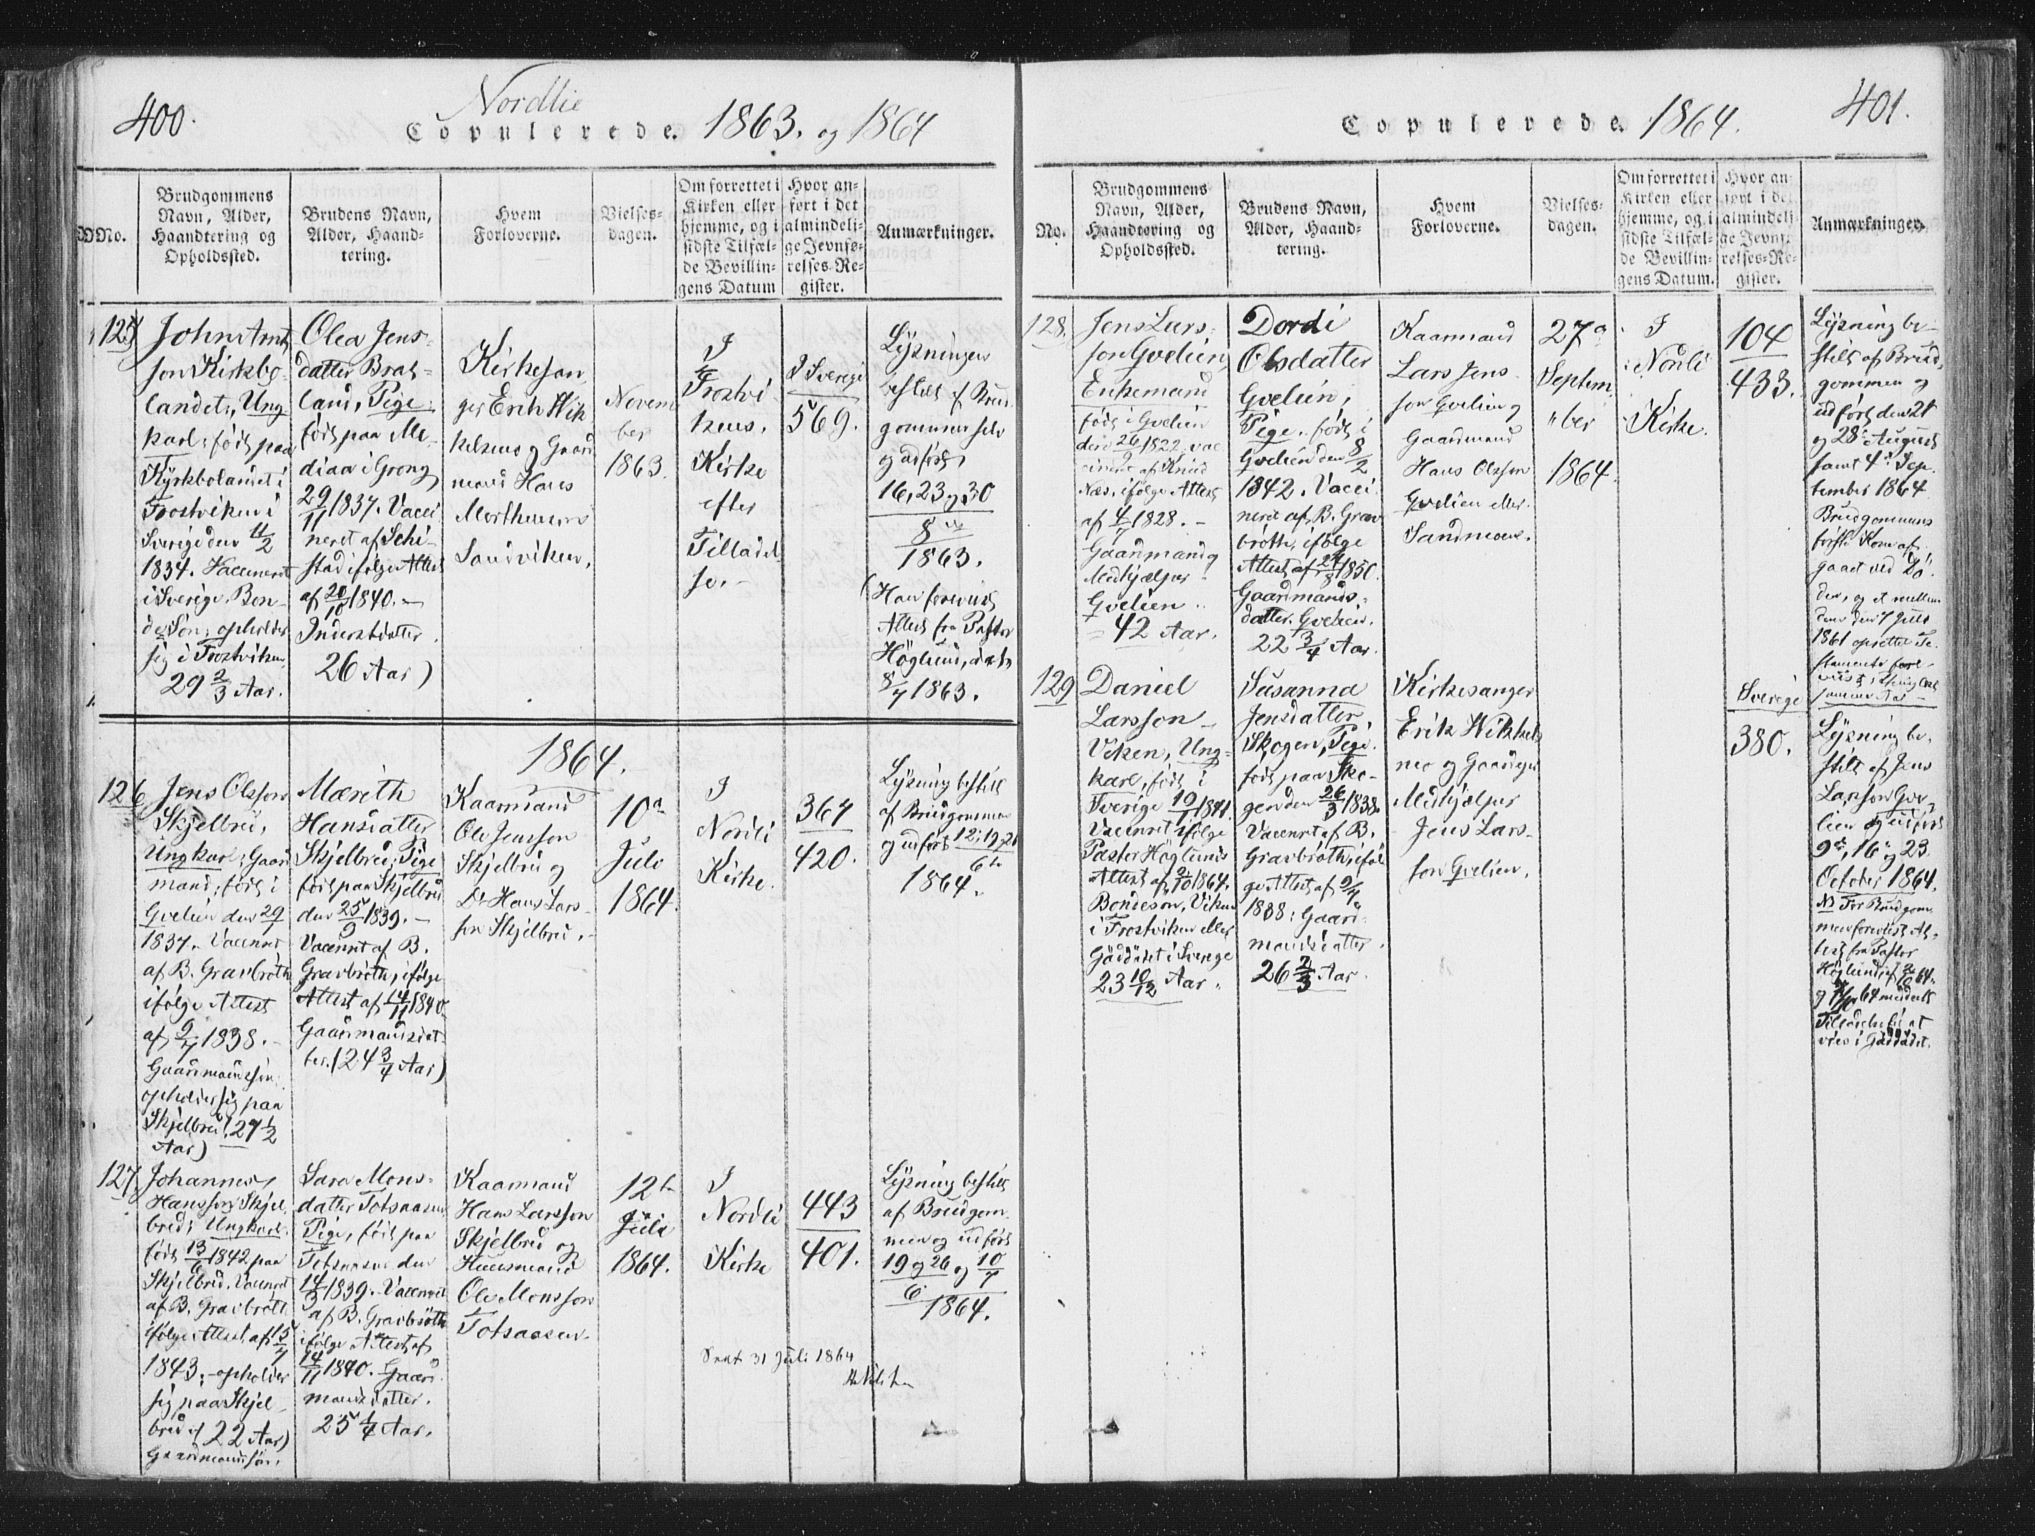 400.
Nordlie
Copulerede. 1863. og 1864
No.
Brudgommens
Navn, Alder,
Haandtering og
Opholdssted.
Brudens Navn,
Alder, Haand-
tering.
Hvem
Forloverne.
Vielses-
dagen.
Om forrettet i
Kirken eller
hjemme, og i
sidste Tilfæl-
de Bevillin-
gens Datum
Hvor an-
ført i det
almindeli-
ge Jevnfø-
relses-Re-
gister.
Anmærkninger.
125
John
son Kirkbo-
landet, Ung
karl, født paa
Kyrkbolandet i
Frostviken i
Sverige den 11/2
1834. Vaccineret
i Sverige. Bon-
de Søn, opholder
sig i Frostviken
29 2/3 Aar.
Olea Jens-
datter Brat-
land, Pige
født paa Me-
diaa i Grong
29/11 1837. Vacci
neret af Schi-
stad ifølge Attest
af 20/10 1840. –
Inderstdatter.
26 Aar)
Kirkesan
ger Erik Mik
kelsen og Gaard
mand Hans
Morthensen
Sandviken.
Novem
ber
1863.
I
Frostvi
kens
Kirke
efter
Tilladel
se. –
I Sverige
569.
Lysningen
bestilt af Brud
gommen selv
og udført
16, 23 og 30
8
1863.
(Han foreviist
Attest fra Pastor
Höglund, dat.
8/7 1863.
1864.
126
Jens Olsson
Skjelbred,
Ungkarl, Gaard
mand, født i
Gvelien den 29
1837. Vaccinert
af B. Gravbrøth
ifølge Attest
af 9/7 1838. –
Gaardmandssøn
opholder sig paa
Skjelbred. 27 1/2
Aar)
Mereth
Hansdatter
Skjelbred, Pige
født paa Skjelbred
den 25/9 1839. –
Vaccinert af B.
Gravbrøth, ifølge
Attest af 14/11 1840
Gaardmandsdat
ter. (24 3/4 Aar)
Kaarmand
Ole Jensson
Skjelbred og
Do Hans Lars-
son Skjelbred. –
10de
Juli
1864.
I
Nordli
Kirke.
364
420.
Lysning bestilt
af Brudgommen
og udført 12, 19, 26
6
1864.
127
Johannes
Hansson Skjel
bred, Ungkarl.
født 13/6 1842 paa
Skjelbred. Vaccinert
af B. Gravbrøth
ifølge Attest af 15/7
1843, – opholder
sig paa Skjel-
bred (22 Aar)
Gaardmandssøn.
Sara Mons-
datter Totsaasen
Pige, født paa
Totsaasen den
14/3 1839. Vaccineret
af B. Gravbrøth
ifølge Attest af
14/11 1840. Gaard
mandsdatter.
25 1/4 Aar.
Kaarmand
Hans Larsson
Skjelbred og
Huusmand
Ole Monsson
Totsaasen.
12te
Juli
1864.
I
Nordli
Kirke
443
401.
Lysning bestilt
af Brudgom
men og udført
19 og 26 og 10/7
6
1864.
Seet 31 Juli 1864
401.
Copulerede. 1864.
No.
Brudgommens
Navn, Alder,
Haandtering og
Opholdssted.
Brudens Navn,
Alder, Haand-
tering.
Hvem
Forloverne.
Vielses-
dagen.
Om forrettet i
Kirken eller
hjemme, og i
sidste Tilfæl-
de Bevillin-
gens Datum.
Hvor an-
ført i det
almindeli-
ge Jevnf.
relses-Re-
gister.
Anmærkninger.
128.
Jens Lars-
son Gvelien,
Enkemand
født i Gvelien
den 26/9 1822, vac
cineret af Knud
Næs, ifølge Attest
af 4/7 1828. –
Gaardmand og
Medhjælper
Gvelien.
42 Aar.
Dordi
Olsdatter
Gvelien,
Pige, født i
Gvelien den 8/2
1842. Vacci
neret af B. Grav
brøth, ifølge
Attest af 24/8 1850.
Gaardmands-
datter. Gvelien.
22 3/4 Aar.
Kaarmand
Lars Jens
son Gvelien og
Gaardmand
Hans Olsson
Gvelien eller
Sandmoen.
27de
Septem
ber
1864.
I
Nordli
Kirke.
104
433.
Lysning be-
stilt af Brud
gommen og
udført den 21
og 28 August
samt 4de Sep
tember 1864.
Brudgommens
første Kone af-
gaaet ved Dø-
den, og et mellem
dem den 7 Juli
1861 oprettet Te-
stamente fore-
viist,
129
Daniel
Larsson
Viken, Ung-
karl, født i
Sverige 10/1 1841.
Vaccinert ifølge
Pastor Höglunds
Attest af 2/10 1864.
Bondesøn, Viken
i Frostviken eller
Gäddåset i Sverige
23 10/12 Aar.
Susanna
Jensdatter
Skogen, Pige.
født paa Sko-
gen den 26/3 1838.
Vaccinert af B.
Gravbrøth, iføl
ge Attest af 9/7
1838; Gaard
mandsdatter.
26 2/3 Aar.
Kirkesanger
Erik Mikkels
en og Gaardmand
Medhjælper
Jens Lars-
son Gvelien.
Sverige
380.
Lysning be-
stilt af Jens
Larsson Gve-
lien og udført
9de, 16 og 23
October 1864.
NB For Brudgom
men foreviist At-
test fra Pastor
Höglund
Tilladelse til at
vies i Gäddåset.